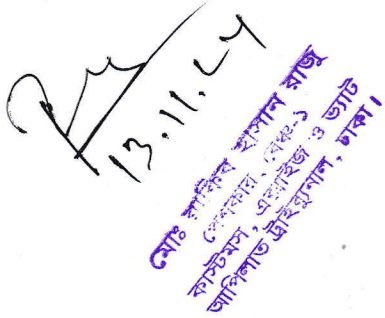 13.11.24
মোঃ রাকিব হাসান রাজু
পেশকার, বেঞ্চ-১
কাস্টমস, এক্সাইজ ও ভ্যাট
আপিলাত ট্রাইব্যুনাল, ঢাকা।